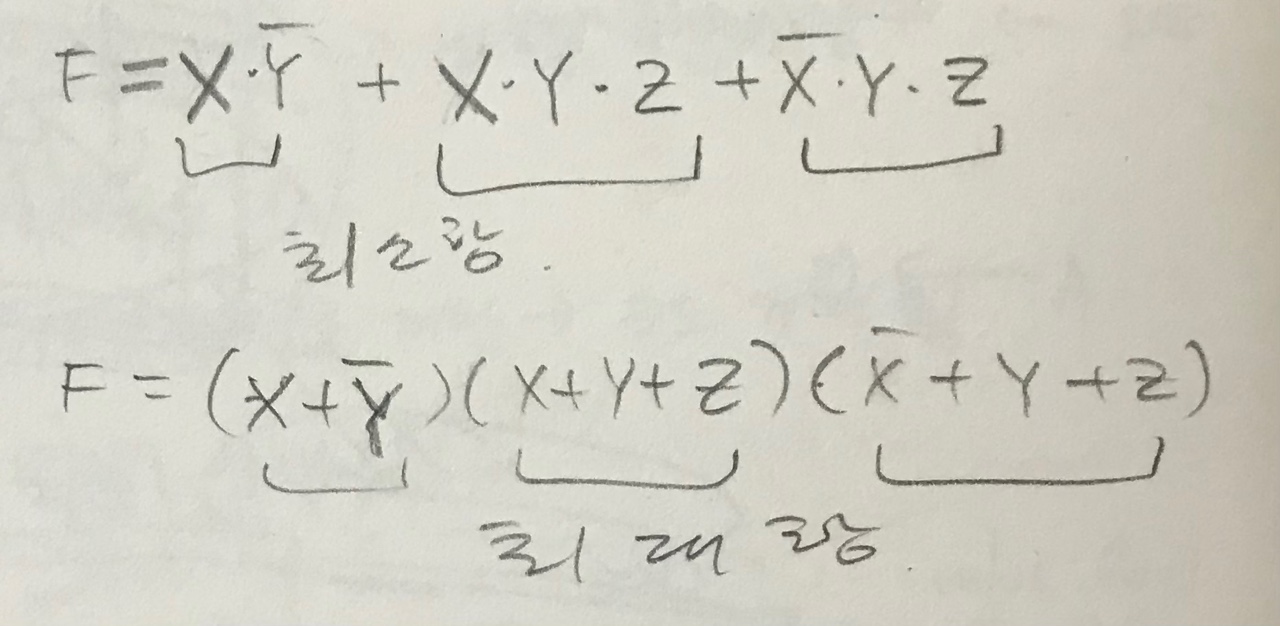 F = X·Y̅ + X·Y·Z + X̅·Y·Z
최소항.
F = (X+Y̅)(X+Y+Z)(X̅+Y+Z)
최대항.